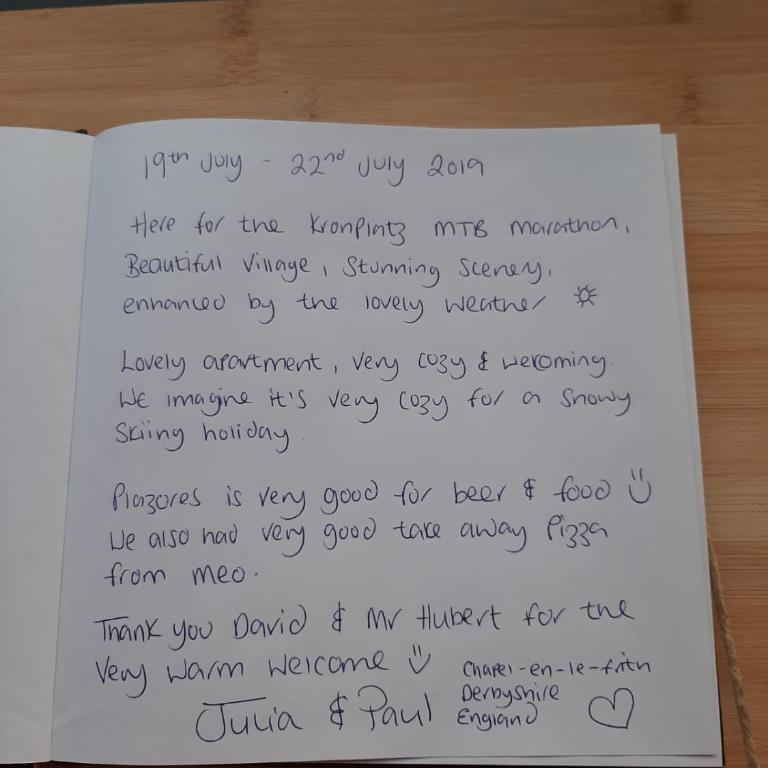 19th July - 22nd July 2019
Here for the Kronplatz MTB marathon,
Beautiful Village, Stunning Scenery,
enhanced by the lovely weather
Lovely apartment, very cozy & welcoming.
We imagine it's very cozy for a snowy
Skiing holiday.
is very good for beer & food
We also had very good take away Pizza
from meo.
Thank you David & Mr Hubert for the
very warm welcome
Chapel-en-le-frith
Derbyshire
England
Julia & Paul